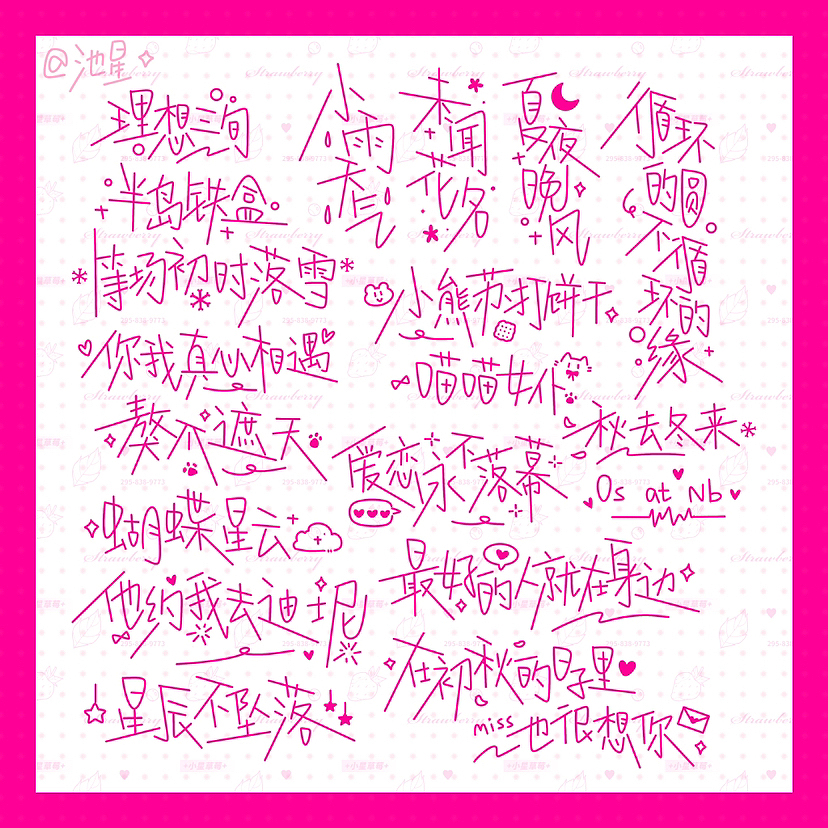 @池星
理想三旬
半岛铁盒
等场初时落雪
你我真心相遇
熬不遮天
蝴蝶星云
他约我去迪士尼
星辰不坠落
小雨天气
未闻花名
夏夜晚风
循环的圆不循环的缘
小熊苏打饼干
喵喵女仆
秋去冬来
爱恋永不落幕
Os at Nb
最好的人就在身边
在初秋的日子里
miss 也很想你
Strawberry
+小星草莓+
295-838-9773